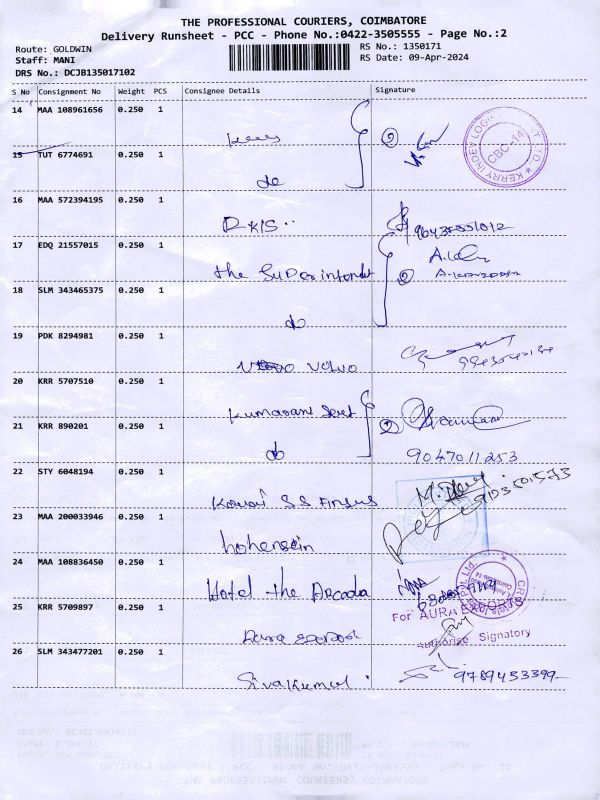 THE PROFESSIONAL COURIERS, COIMBATORE
Delivery Runsheet - PCC - Phone No.:0422-3505555 - Page No.:2
Route: GOLDWIN
Staff: MANI
DRS No.: DCJB135017102
RS No.: 1350171
RS Date: 09-Apr-2024
S No Consignment No Weight PCS Consignee Details Signature
14 MAA 108961656 0.250 1
KERRY INDEV LOG T. LTD. CBC-14
15 TUT 6774691 0.250 1
do
16 MAA 572394195 0.250 1
17 EDQ 21557015 0.250 1
the Superintendet
18 SLM 343465375 0.250 1
do
19 PDK 8294981 0.250 1
VOLVO
20 KRR 5707510 0.250 1
21 KRR 890201 0.250 1
do
9047011253
22 STY 6048194 0.250 1
Kovai S.S Finsus
23 MAA 200033946 0.250 1
hohensein
24 MAA 108836450 0.250 1
Hotel the Arcada
For AURA EXPORTS
25 KRR 5709897 0.250 1
Authorise Signatory
26 SLM 343477201 0.250 1
Sivakumul
9789453399